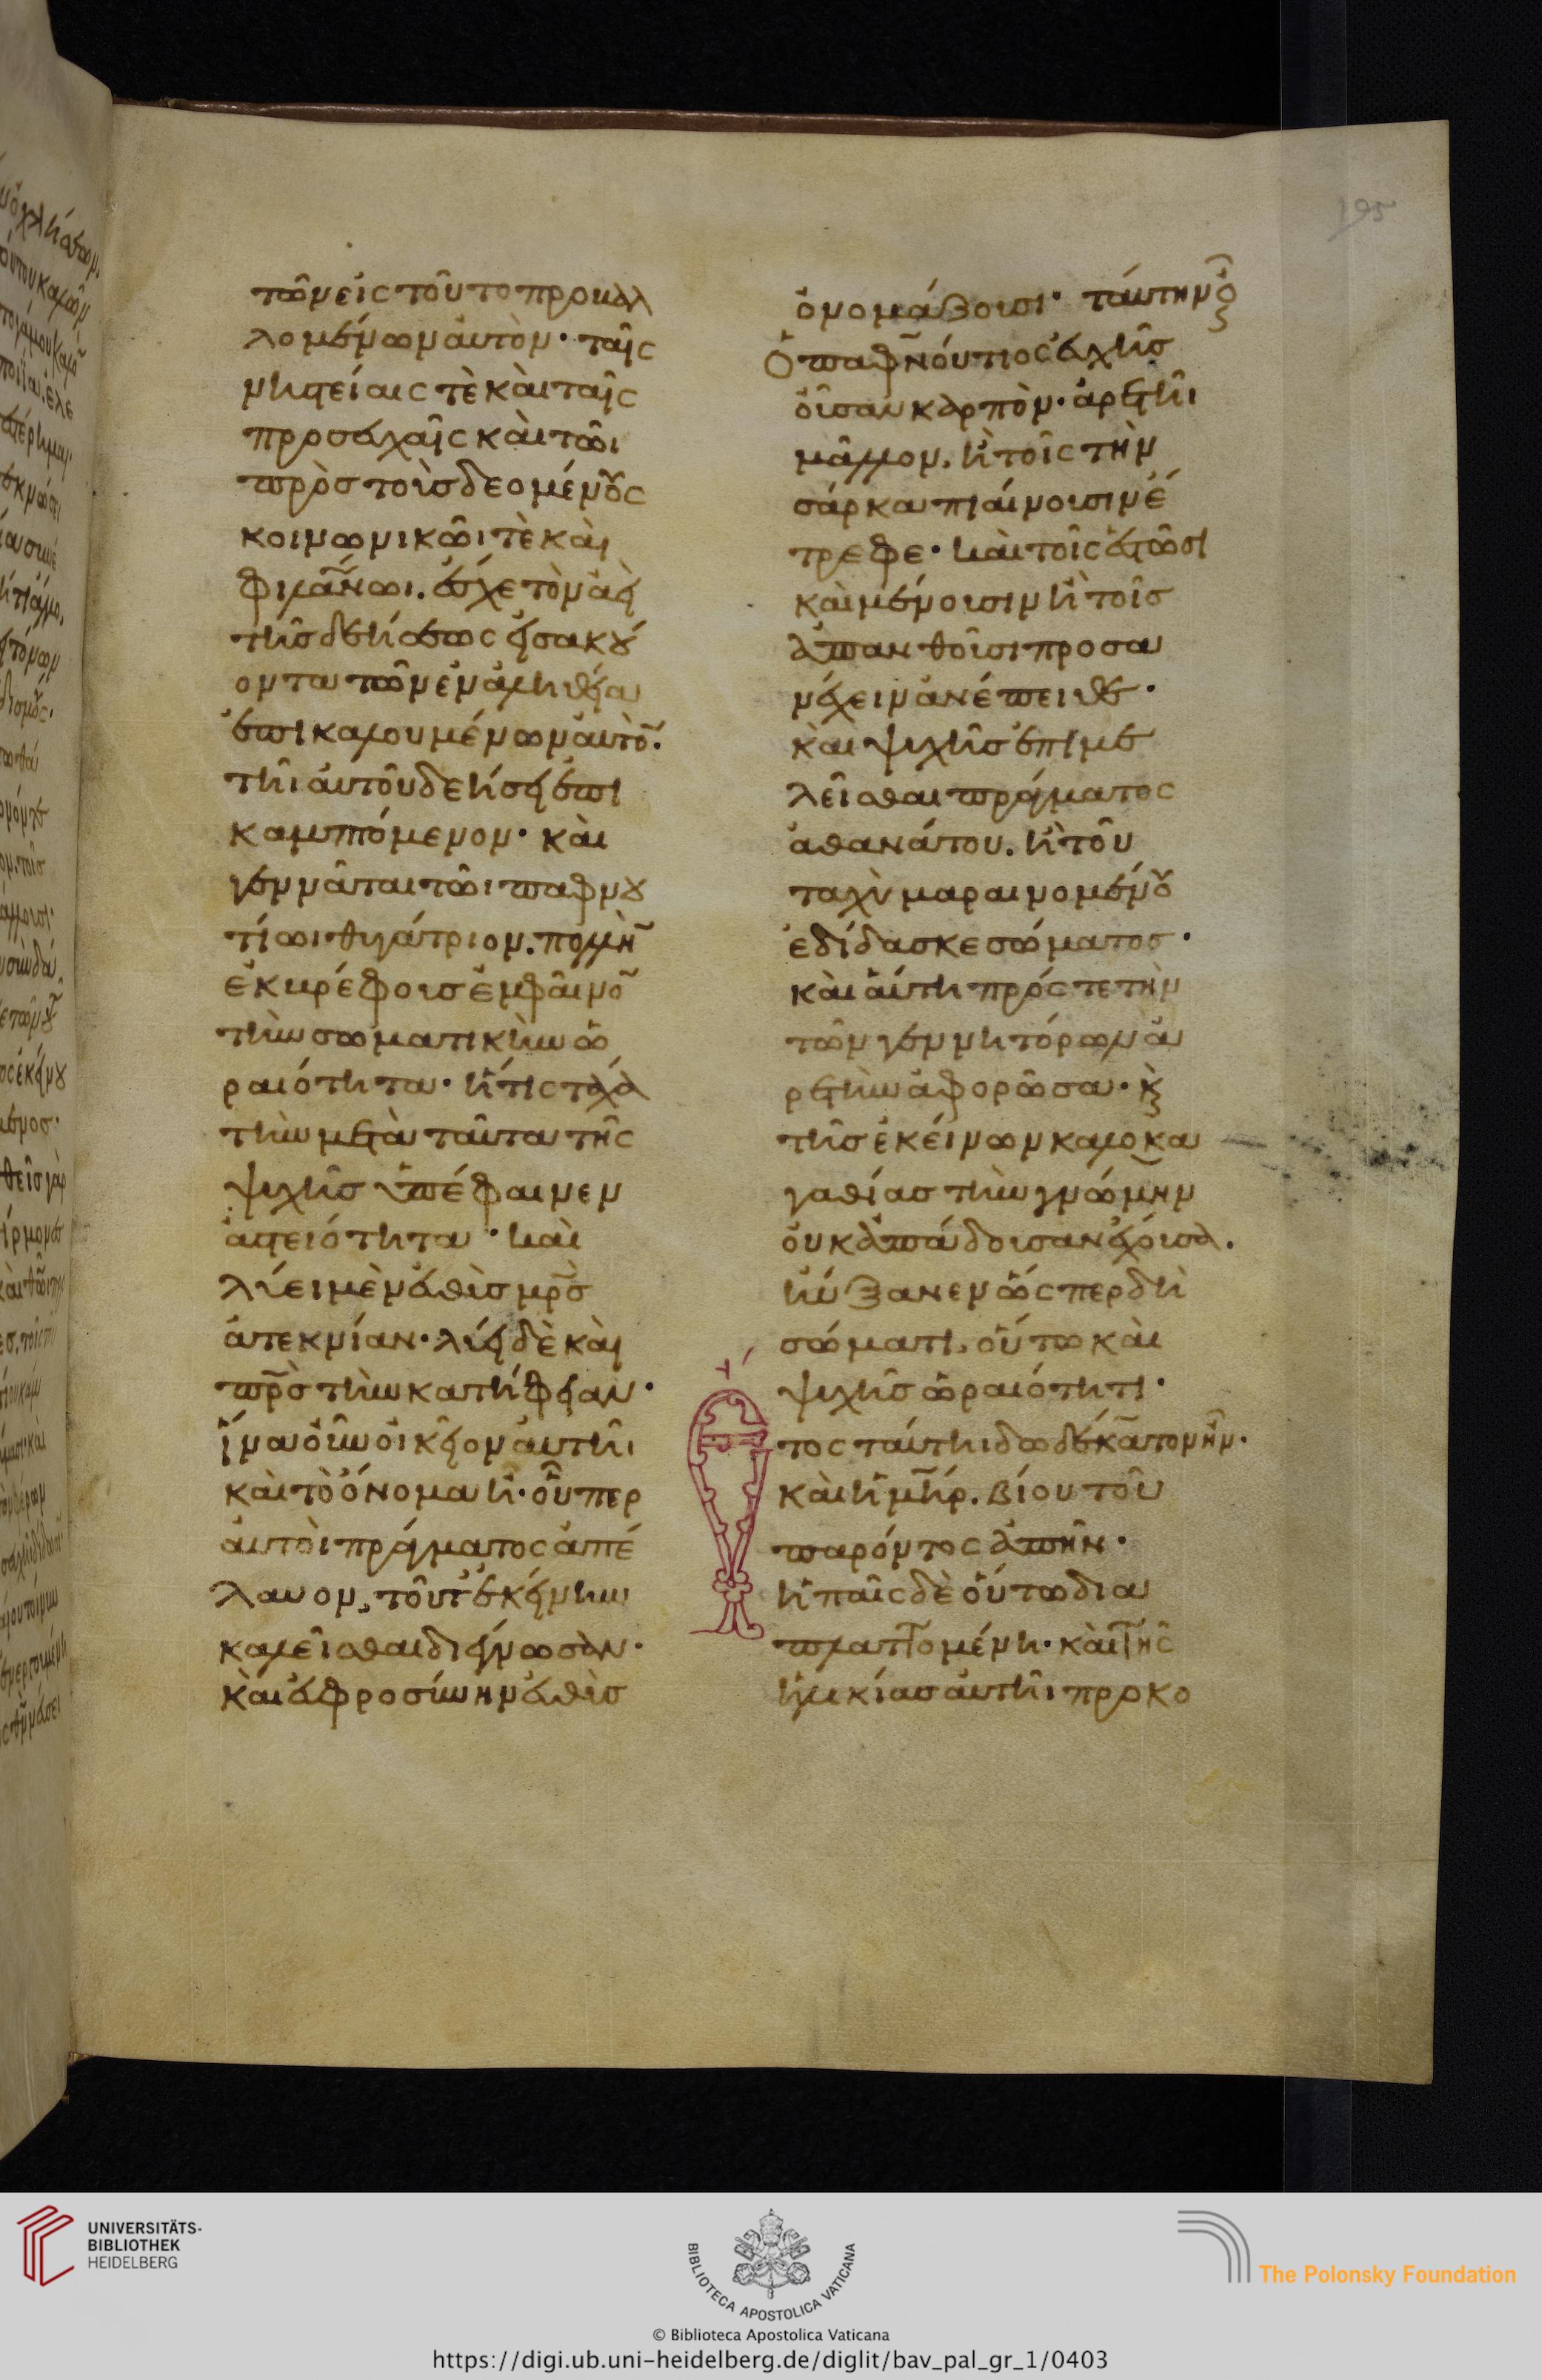 195
τῶν εἰς τοῦτο προκαλ
λομένων αὐτὸν· ταῖς
νηστείαις τὲ καὶ ταῖς
προσευχαῖς καὶ τῶι
πρὸς τοὺς δεομένους
κοινωνικῶι τὲ καὶ
φιλαν̅ωι. ἔσχε τὸν ἀεὶ
τῆς δεήσεως εἰσακού
οντα τῶν ἐν ἀληθεία
ἐπικαλουμένων αὐτὸν.
τῆι αὐτοῦ δεήσει ἐπι
καμπτόμενον· καὶ
γεννᾶται τῶι παφνου
τίωι θυγάτριον. πολλὴν
ἐκ βρέφους ἐμφαῖνον
τὴν σωματικὴν ὡ
ραιότητα· ἥτις τάχα
τὴν μετὰ ταῦτα τῆς
ψυχῆς ὑπέφαινεν
ἀστειότητα· καὶ
λύει μὲν εὐθὺς μρ̅ς
ἀτεκνίαν· λύει δὲ καὶ
πρ̅ς τὴν κατήφειαν·
ἵνα οὖν οἰκεῖον αὐτῆι
καὶ τὸ ὄνομα ἦ· οὗπερ
αὐτοὶ πράγματος ἀπέ
λαυον, τοῦτ' ἐκείνην
καλεῖσθαι διέγνωσαν·
καὶ εὐφροσύνην εὐθὺς
ὀνομάζουσι· ταύτην
ὁ παφνούτιος εὐχῆς
οὖσαν καρπὸν· ἀρετῆι
μᾶλλον. ἢ τοῖς τὴν
σάρκα πιαίνουσιν ἔ
τρεφε· καὶ τοῖς ἑστῶσι
καὶ μένουσιν ἢ τοῖς
ἀπανθοῦσι προσα
νέχειν ἀνέπειθε·
καὶ ψυχῆς ἐπιμε
λεῖσθαι πράγματος
ἀθανάτου. ἢ τοῦ
ταχὺ μαραινομένου
ἐδίδασκε σώματος·
καὶ αὕτη πρός τε τὴν
τῶν γεννητόρων ἀ
ρετὴν ἀφορῶσα· κ̀
τῆς ἐκείνων καλοκα
γαθίας τὴν γνώμην
οὐκ ἀπάδουσαν ἔχουσα.
ηὔξανεν ὥσπερ δὴ
σώματι, οὕτω καὶ
ψυχῆς ὡραιότητι·
Ἔτος ταύτηι δωδέκατον ἦν·
καὶ ἡ μ̅ηρ. βίου τοῦ
παρόντος ἀπῆν·
ἡ παῖς δὲ οὕτω δια
πλαττομένη· καὶ τῆς
ἡλικίας αὐτῆι προκο
UNIVERSITÄTS-
BIBLIOTHEK
HEIDELBERG
BIBLIOTECA APOSTOLICA VATICANA
The Polonsky Foundation
© Biblioteca Apostolica Vaticana
https://digi.ub.uni-heidelberg.de/diglit/bav_pal_gr_1/0403